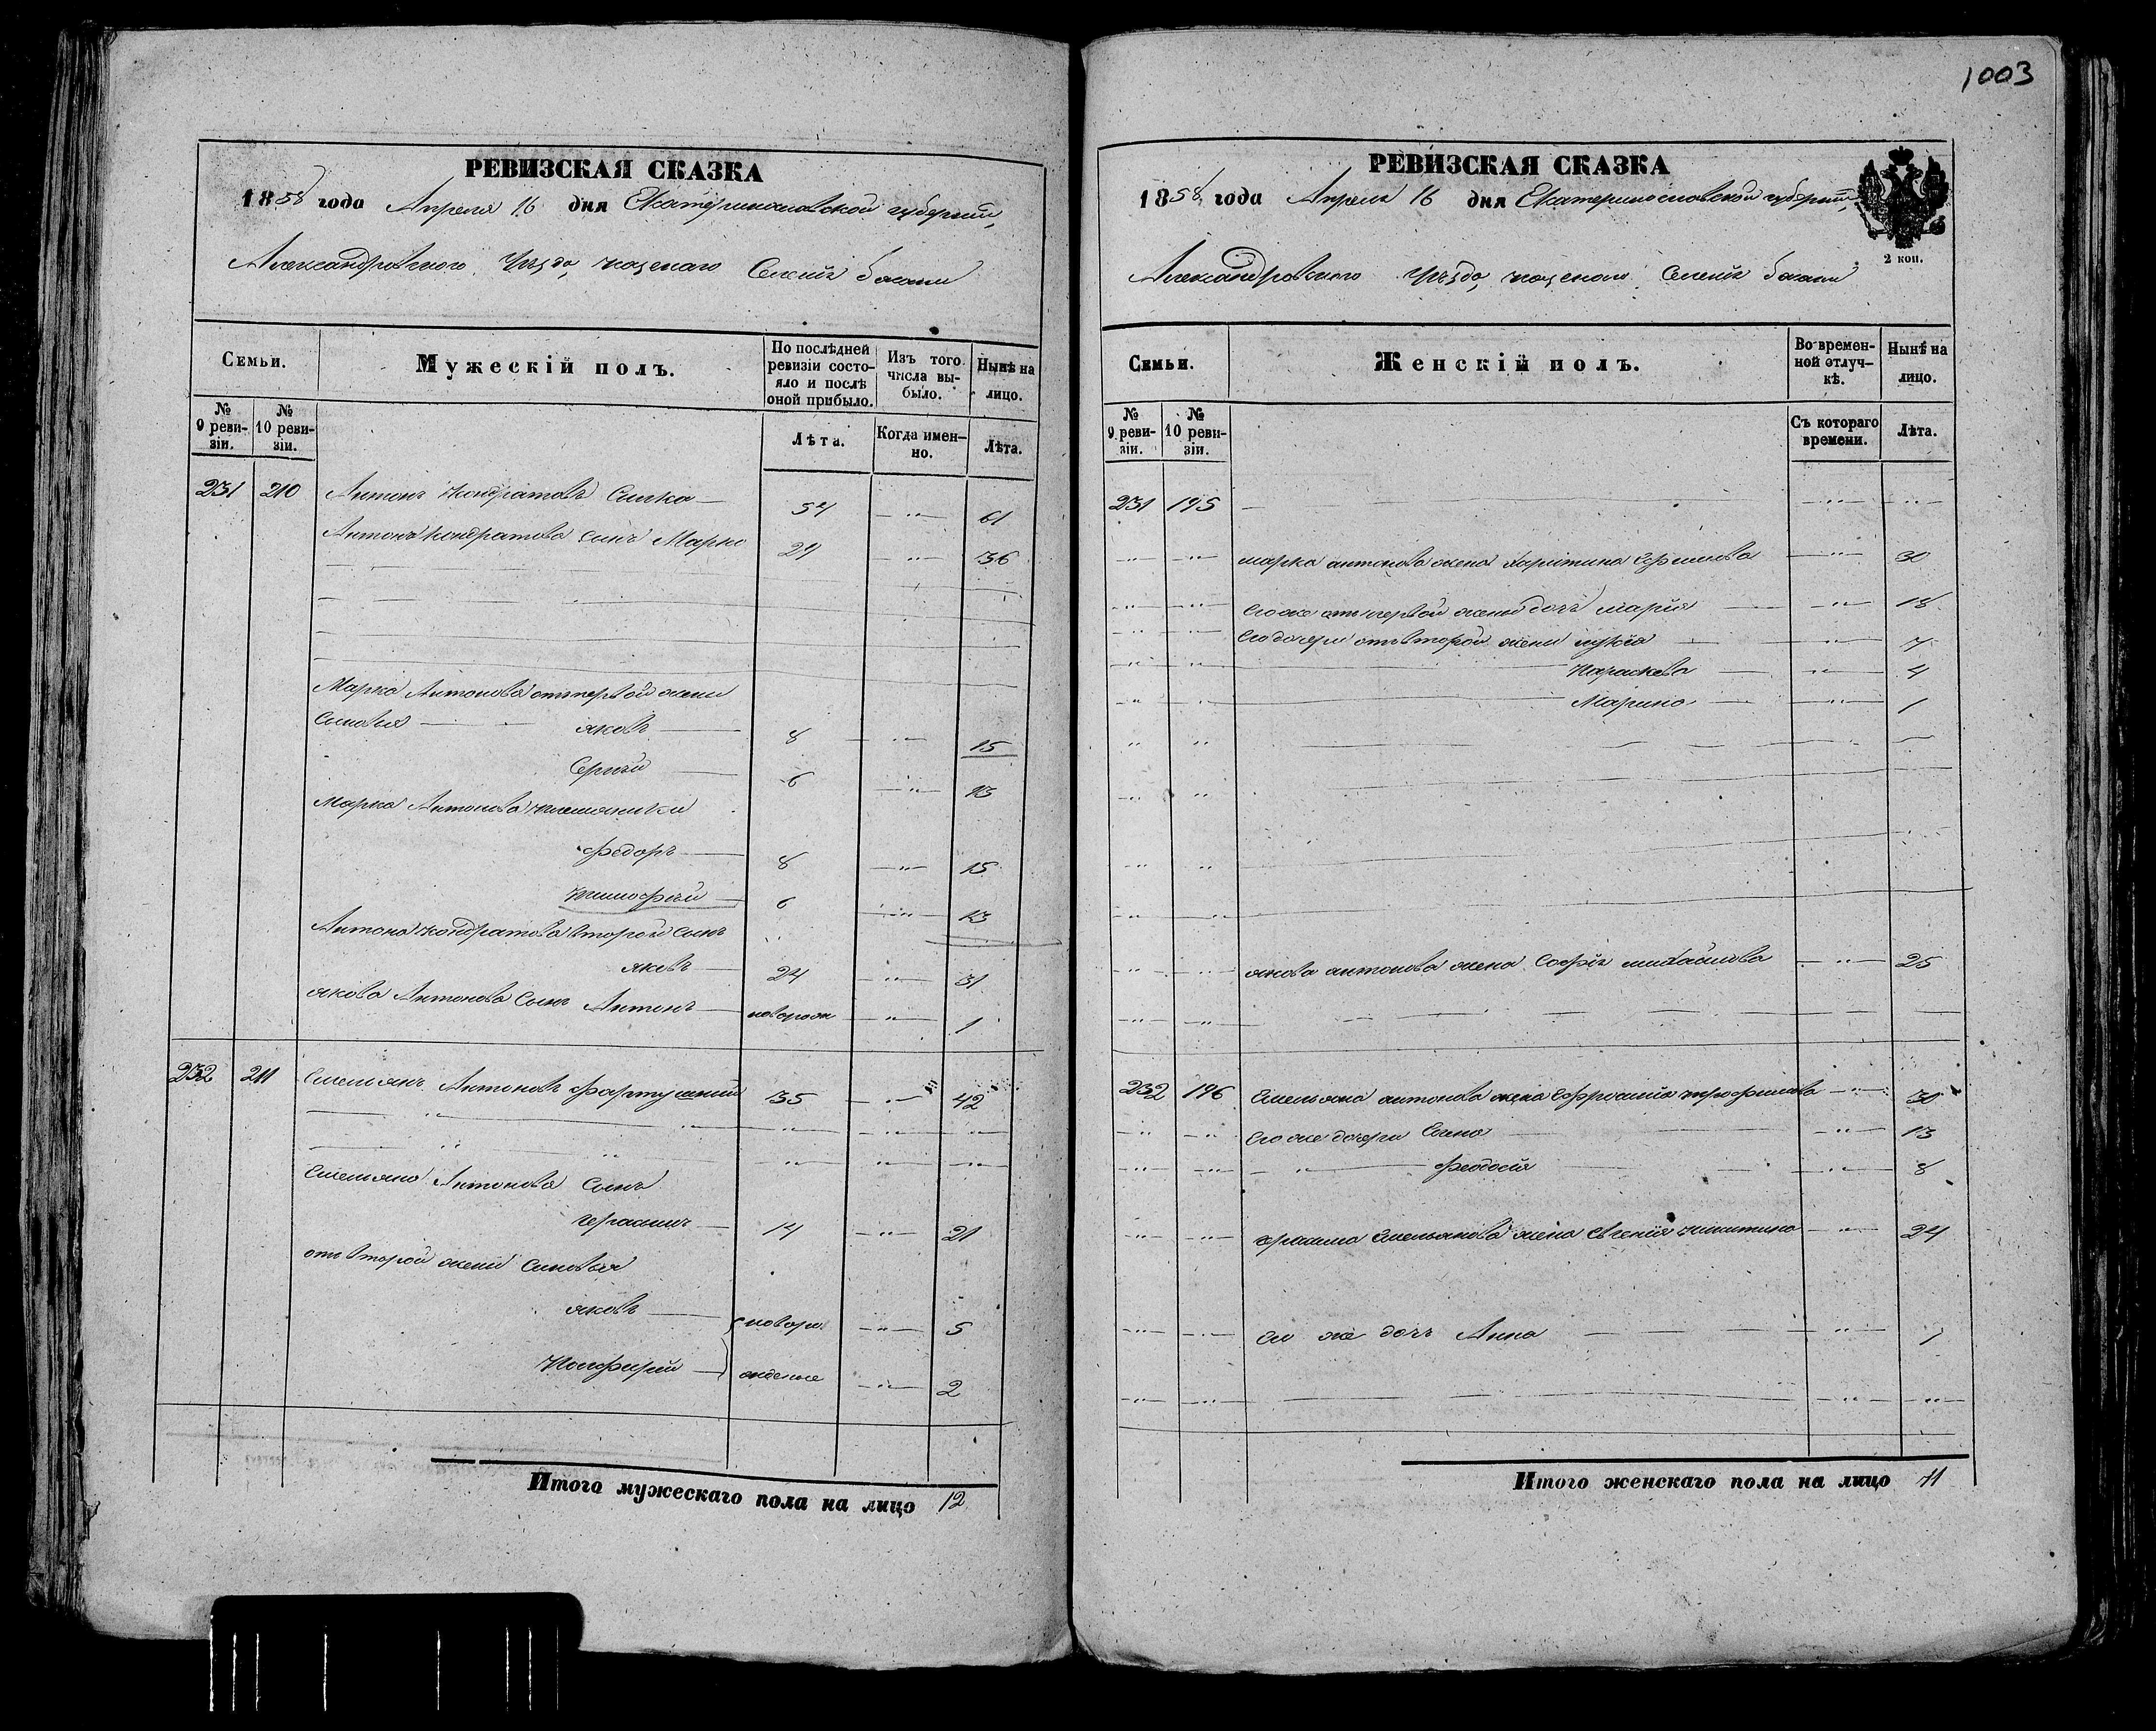 1003
РЕВИЗСКАЯ СКАЗКА
1858 года Апреля 16 дня Екатеринославской губернии,
Александровского Уѣзда, казенаго Селенія
Семьи.
Мужескій полъ.
По послѣдней ревизіи состояло и послѣ оной прибыло.
Изъ того числа выбыло.
Нынѣ на лицо.
№ 9 ревизіи.
№ 10 ревизіи.
Лѣта.
Когда именно.
Лѣта.
231 210 Антонъ Кондратовъ 54 61
Антонъ Кондратова сынъ Марко 29 36
Марка Антонова отъ первой жены
Сыновья Яковъ 8 15
Сергѣй 6 13
Марка Антонова племяники
Федоръ 8 15
Тимофей 6 13
Антона Кондратова второй сынъ
Яковъ 24 31
Якова Антонова Сынъ Антонъ 1
232 211 Емельянъ Антоновъ 35 42
Емельяна Антонова Сынъ
Герасимъ 14 21
отъ второй жени Сыновья
Яковъ новоро 5
жденые 2
Итого мужескаго пола на лицо 12
РЕВИЗСКАЯ СКАЗКА
1858 года Апреля 16 дня Екатеринославской губерніи,
2 коп.
Александровского Уѣзда, казенаго Селенія
Семьи.
Женскій полъ.
Во временной отлучкѣ.
Нынѣ на лицо.
№ 9 ревизіи.
№ 10 ревизіи.
Съ котораго времени.
Лѣта.
231 195
марка антонова жена Харитина Ефимова 30
Его же отъ первой жены дочь Марія 18
Его дочери отъ второй жени 7
Параскева 4
Марина 1
Якова антонова жена Софія михайлова 25
232 196 Емельяна антонова жена Ефросинія 30
Его же дочери Елена 13
Феодосія 8
Герасима Емельянова жена Евгенія никитина 24
Его же дочь Анна 1
Итого женскаго пола на лицо 11